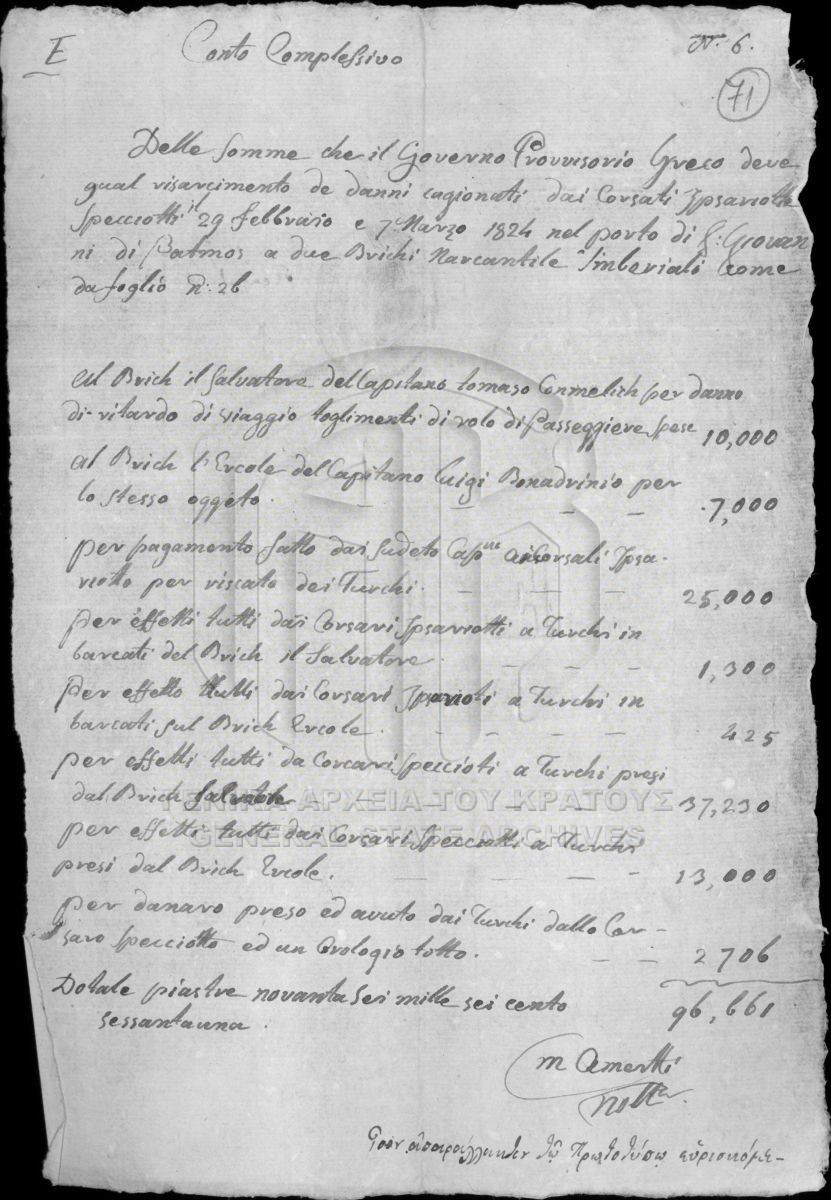 E
Conto Complessivo
N. 6.
71
Delle somme che il Governo Provvisorio Greco deve
qual risarcimento de danni cagionati dai Corsari Ipsariotti
Specciotti il 29 febbraio e 7 Marzo 1824 nel porto di S: Giovan
ni di Patmos a due Brichi Marcantile Imberiali Come
da foglio N: 26
Al Brich il Salvatore del Capitano tomaso per danno
di ritardo di viaggio toglimenti di nolo di Passeggiere spese 10,000
Al Brich l'Ercole del Capitano Luigi Bonadrinio per
lo stesso oggeto. — — — — 7,000
per pagamento fatto dai sudeto Cap Corsali Ipsa-
riotto per riscato dei Turchi. — — — 25,000
per effetti tutti dai Corsari Ipsariotti a Turchi in
barcati del Brich il Salvatore. — — — 1,300
per effetto tutti dai Corsari Ipsarioti a Turchi in
barcati sul Brich Ercole. — — — — 425
per effetti tutti da Corcari Speccioti a Turchi presi
dal Brich Salvatore — — — — 37,230
per effetti tutti dai Corsari Specciotti a Turchi
presi dal Brich Ercole. — — — — 13,000
per danaro preso ed avuto dai Turchi dallo Cor-
saro Specciotto ed un Orologio totto. — — 2706
Dotale piastre novanta sei mille sei cento 96,661
sessantauna.
ΓΕΝΙΚΑ ΑΡΧΕΙΑ ΤΟΥ ΚΡΑΤΟΥΣ
GENERAL STATE ARCHIVES
ἀπαράλλακτον τῷ Πρωτοτύπῳ εὑρισκόμε-